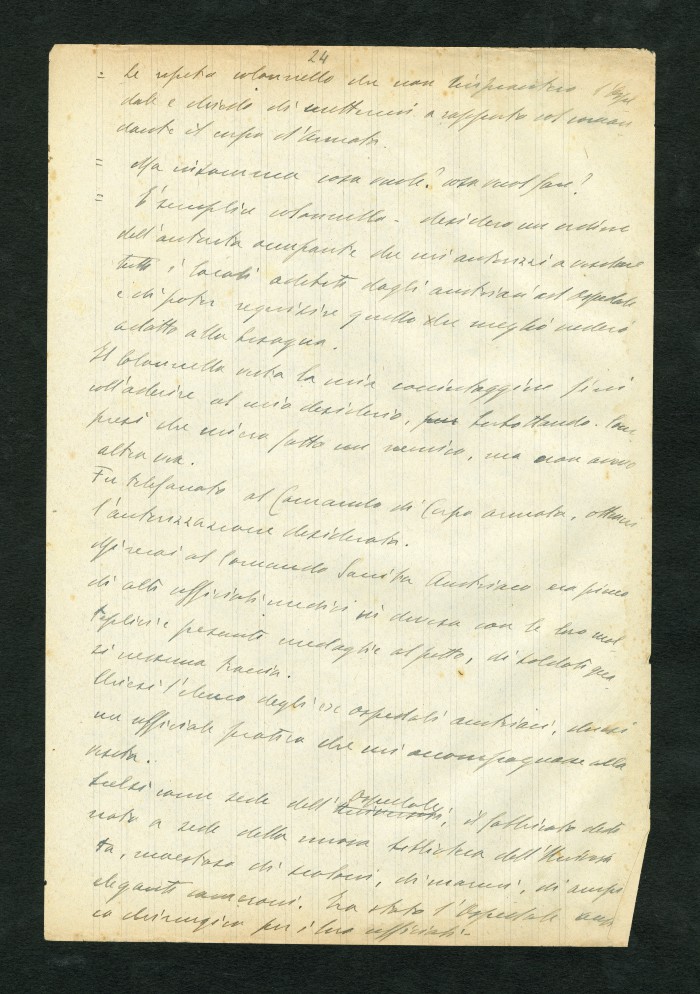 24
= Le ripeto colonnello che non trasporterò l'Ospe
dale e chiedo di mettermi a rapporto col coman
dante il corpo d'Armata.
= Ma insomma cosa vuole? cosa vuol fare?
= È semplice colonnello - desidero un ordine
dell'autorità occupante che mi autorizzi a visitare
tutti i locali adibiti dagli austriaci ad ospedale
e di poter requisire quello che meglio vedrò
adatto alla bisogna.
Il Colonnello vista la mia cocciutaggine finì
coll'aderire al mio desiderio, borbottando. Com
presi che m'ero fatto un nemico, ma non avevo
altra via.
Fu telefonato al Comando di Corpo armata, ottenni
l'autorizzazione desiderata.
Mi recai al Comando Sanità Austriaco era pieno
di alti ufficiali medici in divisa con le loro mol
teplici e pesanti medaglie al petto, di soldati qua
si nessuna traccia.
Chiesi l'elenco degli ex ospedali austriaci, chiesi
un ufficiale pratico che mi accompagnasse alla
visita.
Scelsi come sede dell'ospedale, il fabbricato desti
nato a sede della nuova biblioteca dell'Universi
tà, maestoso di scaloni, di marmi, di ampi
eleganti cameroni. Era stato l'Ospedale austri
co chirurgico per i loro ufficiali.-